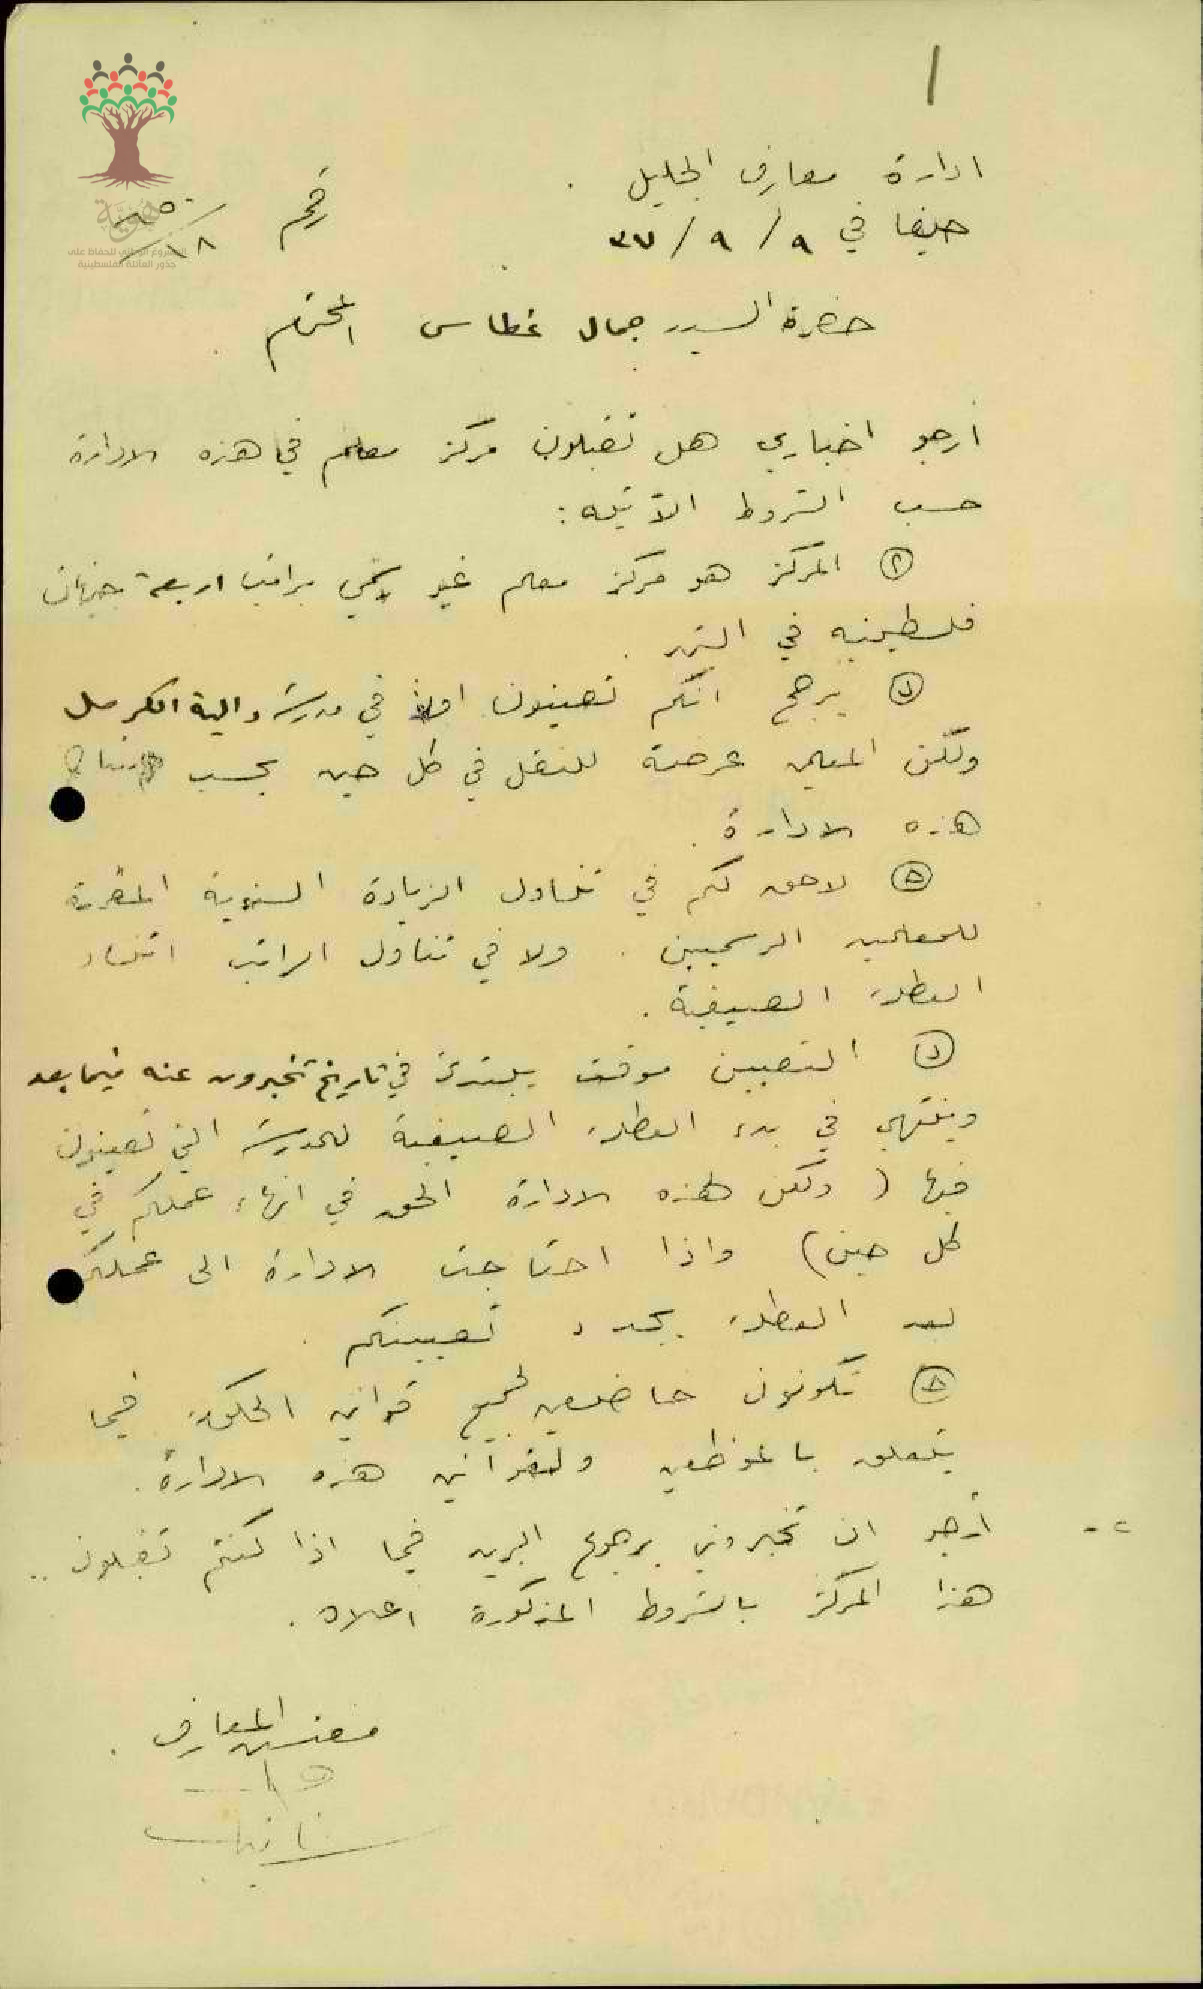 ١
ادارة معارف الجليل .
حيفا في ٩ / ٩ / ٣٧ رقم
هوية
المشروع الوطني للحفاظ على
جذور العائلة الفلسطينية
حضرة السيد جمال غطاس المحترم .
أرجو اخباري هل تقبلون مركز معلم في هذه الادارة
حسب الشروط الآتيه :
المركز هو مركز معلم غير رسمي براتب اربعة جنيهات
فلسطينيه في الشهر .
يرجح انكم تعينون اولا في مدرسة دالية الكرمل
ولكن المعلمين عرضة للنقل في كل حين بحسب
هذه الادارة .
لا حق لكم في تناول الزيادة السنوية المقررة
للمعلمين الرسميين . ولا في تناول الراتب اثناء
العطلة الصيفية .
التعيين موقت يبتدئ في تاريخ تخبرون عنه فيما بعد
وينتهي في بدء العطلة الصيفية للمدرسة التي تعينون
فيها ( ولكن لهذه الادارة الحق في انهاء عملكم في
كل حين ) واذا احتاجت الادارة الى عملكم
بعد العطلة يجدد تعيينكم .
تكونون خاضعين لجميع قوانين الحكومة فيما
يتعلق بالموظفين ولقوانين هذه الادارة .
٢ - أرجو ان تخبروني برجوع البريد فيما اذا كنتم تقبلون ..
هذا المركز بالشروط المذكورة اعلاه .
مفتش المعارف .